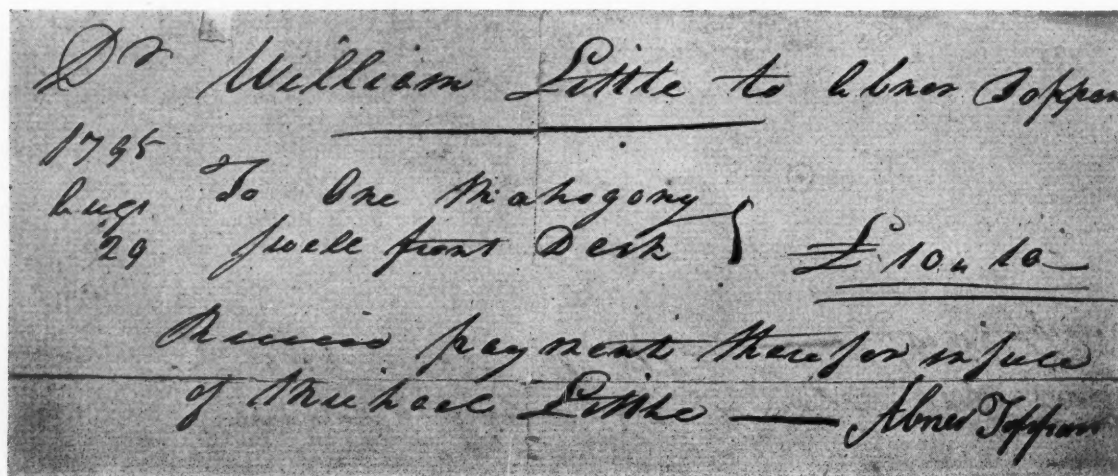 Dr William Little to Abner Toppan
1795 To One Mahogony
Augt
29 swell front Desk } £10,, 10
Receivd payment therefor in full
of Michael Little — Abner Toppan